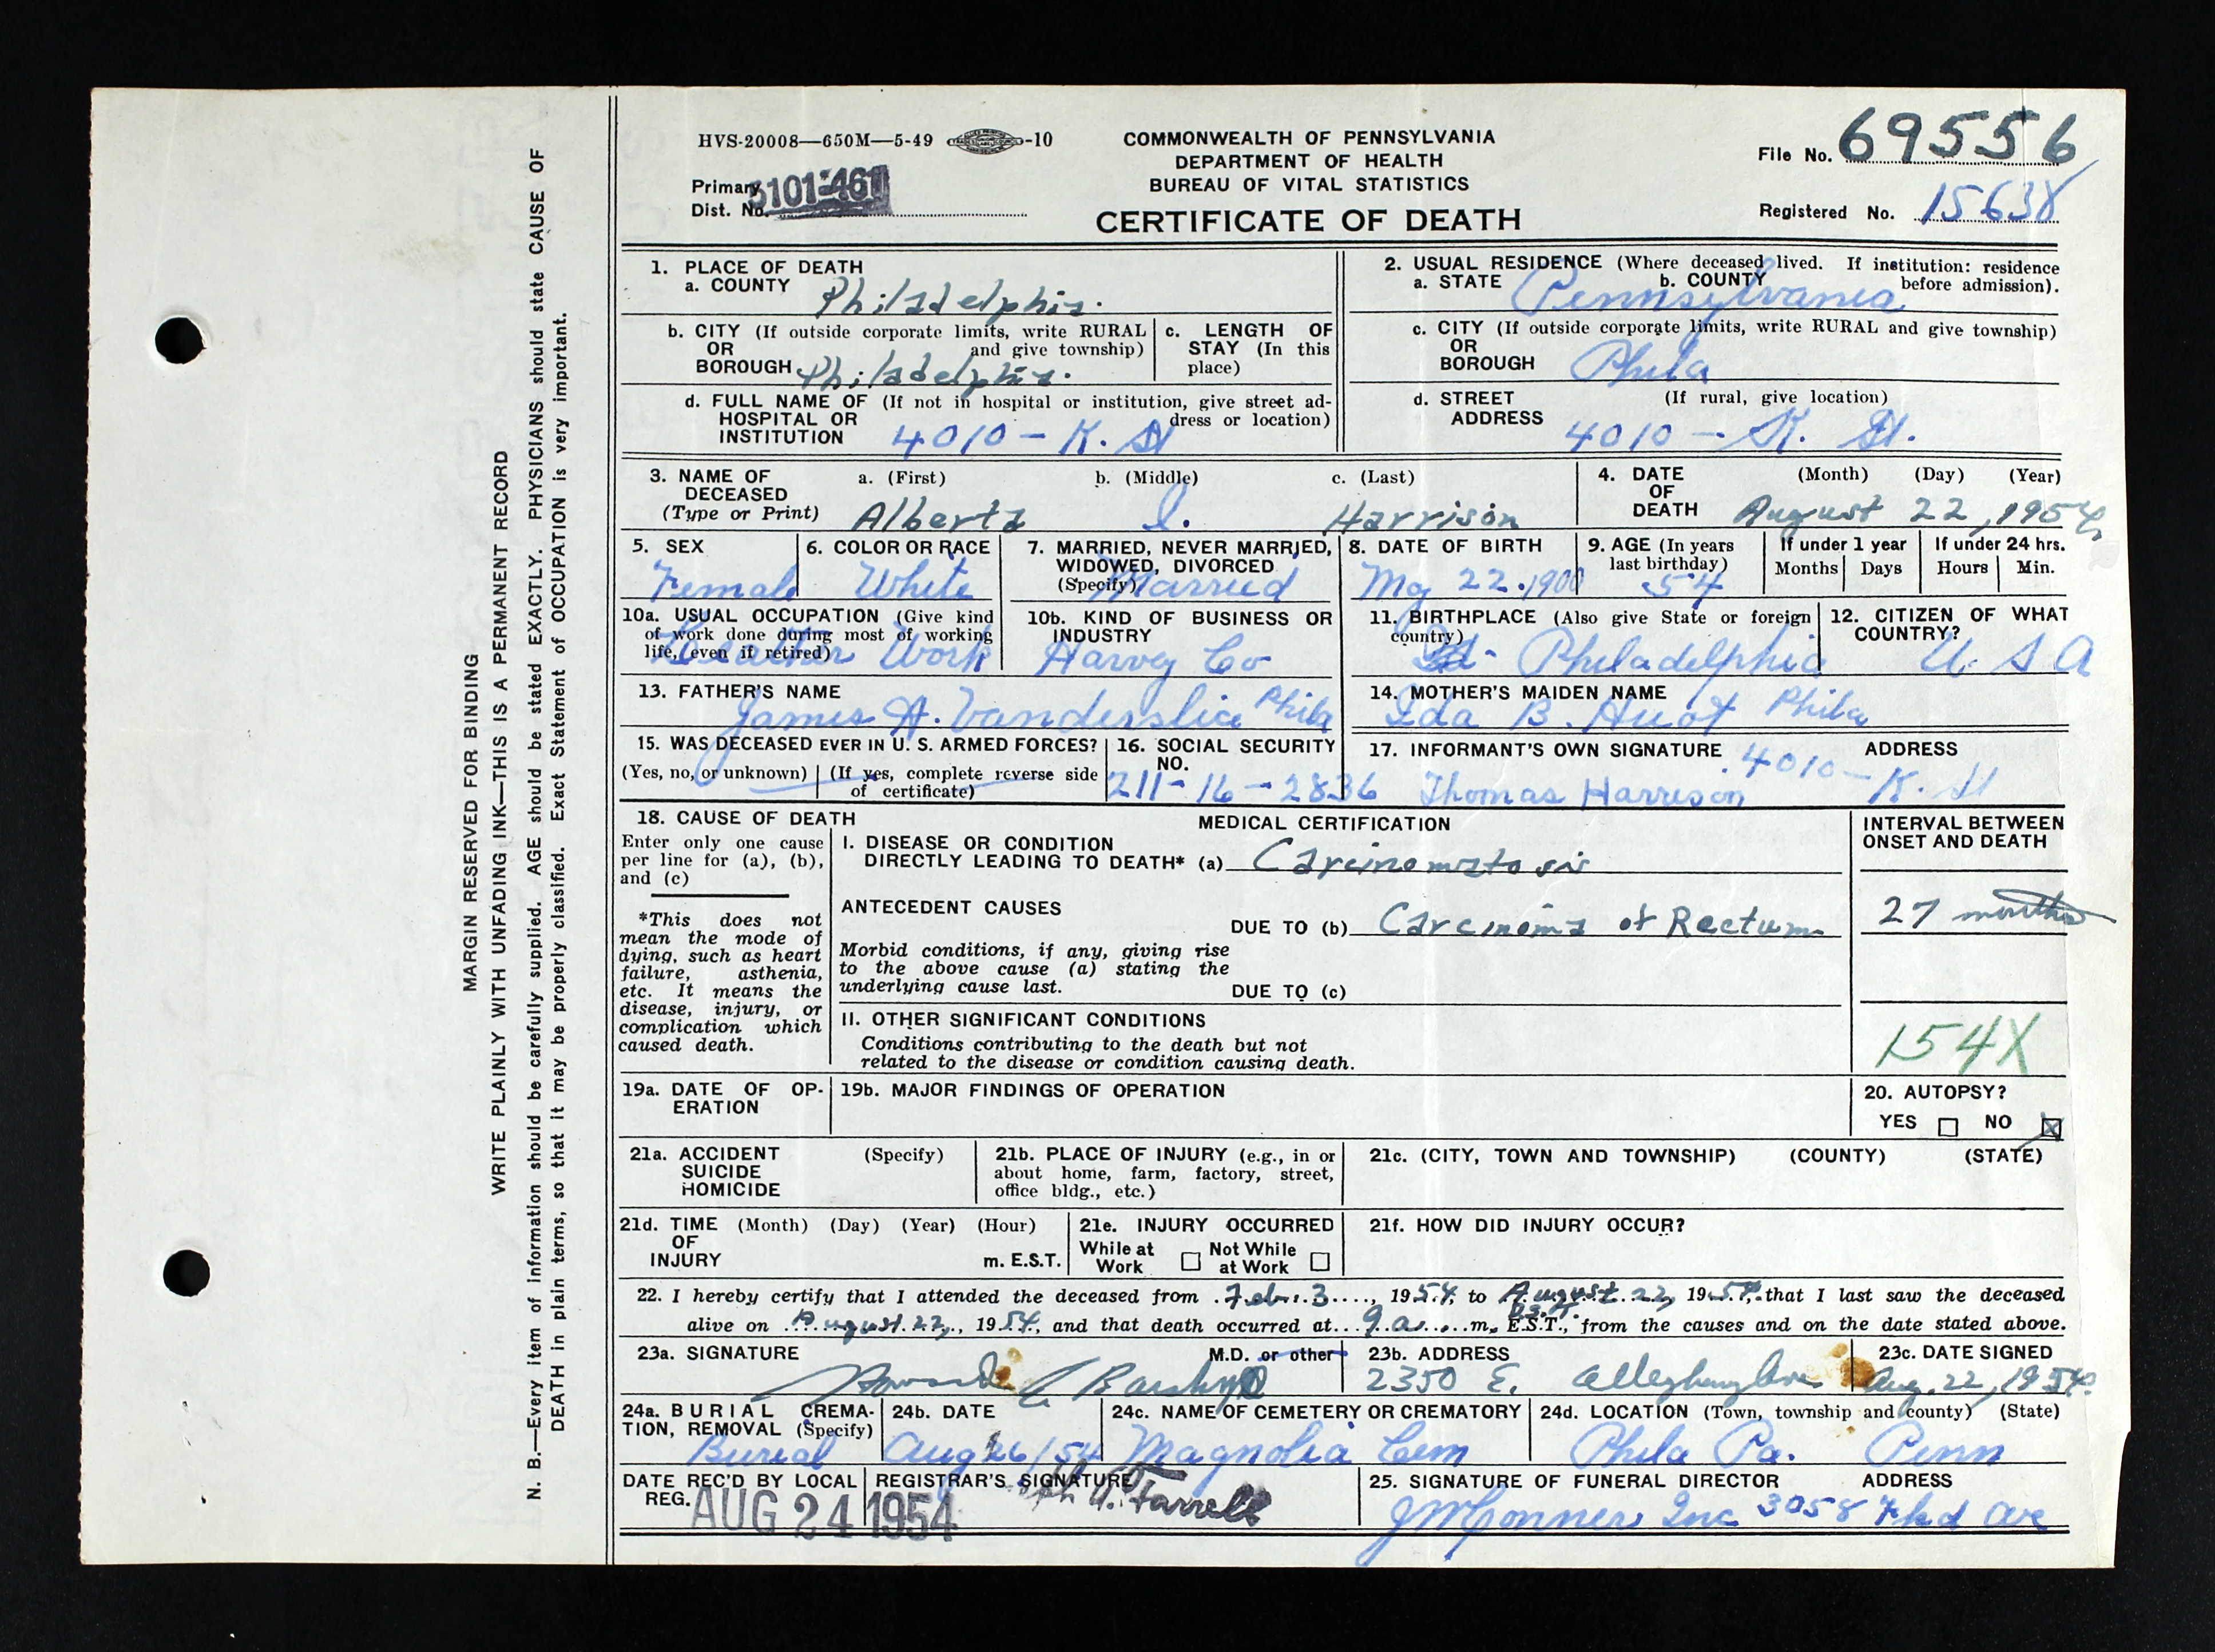 HVS-20008—650M—5-49 -10
COMMONWEALTH OF PENNSYLVANIA
DEPARTMENT OF HEALTH
BUREAU OF VITAL STATISTICS
CERTIFICATE OF DEATH
File No. 69556
Primary Dist. No. 5101-461
Registered No. 15638
1. PLACE OF DEATH
a. COUNTY Philadelphia.
b. CITY (If outside corporate limits, write RURAL
OR and give township)
BOROUGH Philadelphia.
c. LENGTH OF
STAY (In this
place)
d. FULL NAME OF (If not in hospital or institution, give street ad-
HOSPITAL OR dress or location)
INSTITUTION 4010 - K. St
2. USUAL RESIDENCE (Where deceased lived. If institution: residence
a. STATE b. COUNTY before admission).
Pennsylvania
c. CITY (If outside corporate limits, write RURAL and give township)
OR
BOROUGH Phila
d. STREET (If rural, give location)
ADDRESS 4010 - K. St.
3. NAME OF DECEASED (Type or Print)
a. (First) b. (Middle) c. (Last)
Alberta I. Harrison
4. DATE OF DEATH (Month) (Day) (Year)
August 22, 1954
5. SEX
Female
6. COLOR OR RACE
White
7. MARRIED, NEVER MARRIED,
WIDOWED, DIVORCED
(Specify) Married
8. DATE OF BIRTH
May 22. 1900
9. AGE (In years
last birthday)
54
If under 1 year
Months Days
If under 24 hrs.
Hours Min.
10a. USUAL OCCUPATION (Give kind
of work done during most of working
life, even if retired)
Leather Work
10b. KIND OF BUSINESS OR
INDUSTRY
Harvey Co
11. BIRTHPLACE (Also give State or foreign
country)
Philadelphia
12. CITIZEN OF WHAT
COUNTRY?
U. S A
13. FATHER'S NAME
James A. Vanderslice Phila
14. MOTHER'S MAIDEN NAME
Ida B. Huot Phila
15. WAS DECEASED EVER IN U. S. ARMED FORCES?
(Yes, no, or unknown) (If yes, complete reverse side
of certificate)
16. SOCIAL SECURITY
NO.
211-16-2836
17. INFORMANT'S OWN SIGNATURE ADDRESS
4010 - K. St
Thomas Harrison
18. CAUSE OF DEATH
Enter only one cause
per line for (a), (b),
and (c)
*This does not
mean the mode of
dying, such as heart
failure, asthenia,
etc. It means the
disease, injury, or
complication which
caused death.
MEDICAL CERTIFICATION
I. DISEASE OR CONDITION
DIRECTLY LEADING TO DEATH* (a) Carcinomatosis
ANTECEDENT CAUSES
DUE TO (b) Carcinoma of Rectum
Morbid conditions, if any, giving rise
to the above cause (a) stating the
underlying cause last.
DUE TO (c)
II. OTHER SIGNIFICANT CONDITIONS
Conditions contributing to the death but not
related to the disease or condition causing death.
INTERVAL BETWEEN
ONSET AND DEATH
27 months
154X
19a. DATE OF OP-
ERATION
19b. MAJOR FINDINGS OF OPERATION
20. AUTOPSY?
YES NO
21a. ACCIDENT (Specify)
SUICIDE
HOMICIDE
21b. PLACE OF INJURY (e.g., in or
about home, farm, factory, street,
office bldg., etc.)
21c. (CITY, TOWN AND TOWNSHIP) (COUNTY) (STATE)
21d. TIME (Month) (Day) (Year) (Hour)
OF
INJURY m. E.S.T.
21e. INJURY OCCURRED
While at Work Not While at Work
21f. HOW DID INJURY OCCUR?
22. I hereby certify that I attended the deceased from Feb. 3, 1954, to August 22, 1954, that I last saw the deceased
alive on August 22, 1954, and that death occurred at 9 a. m. E.S.T., from the causes and on the date stated above.
D.S.T.
23a. SIGNATURE M.D. or other
23b. ADDRESS
2350 E. Allegheny Ave
23c. DATE SIGNED
Aug. 22, 1954
24a. BURIAL CREMA-
TION, REMOVAL (Specify)
Burial
24b. DATE
Aug 26/54
24c. NAME OF CEMETERY OR CREMATORY
Magnolia Cem
24d. LOCATION (Town, township and county) (State)
Phila Pa. Penn
DATE REC'D BY LOCAL
REG. AUG 24 1954
REGISTRAR'S SIGNATURE
A. Farrell
25. SIGNATURE OF FUNERAL DIRECTOR ADDRESS
Inc 3058 Fkd Ave
MARGIN RESERVED FOR BINDING
WRITE PLAINLY WITH UNFADING INK—THIS IS A PERMANENT RECORD
N. B.—Every item of information should be carefully supplied. AGE should be stated EXACTLY. PHYSICIANS should state CAUSE OF
DEATH in plain terms, so that it may be properly classified. Exact Statement of OCCUPATION is very important.